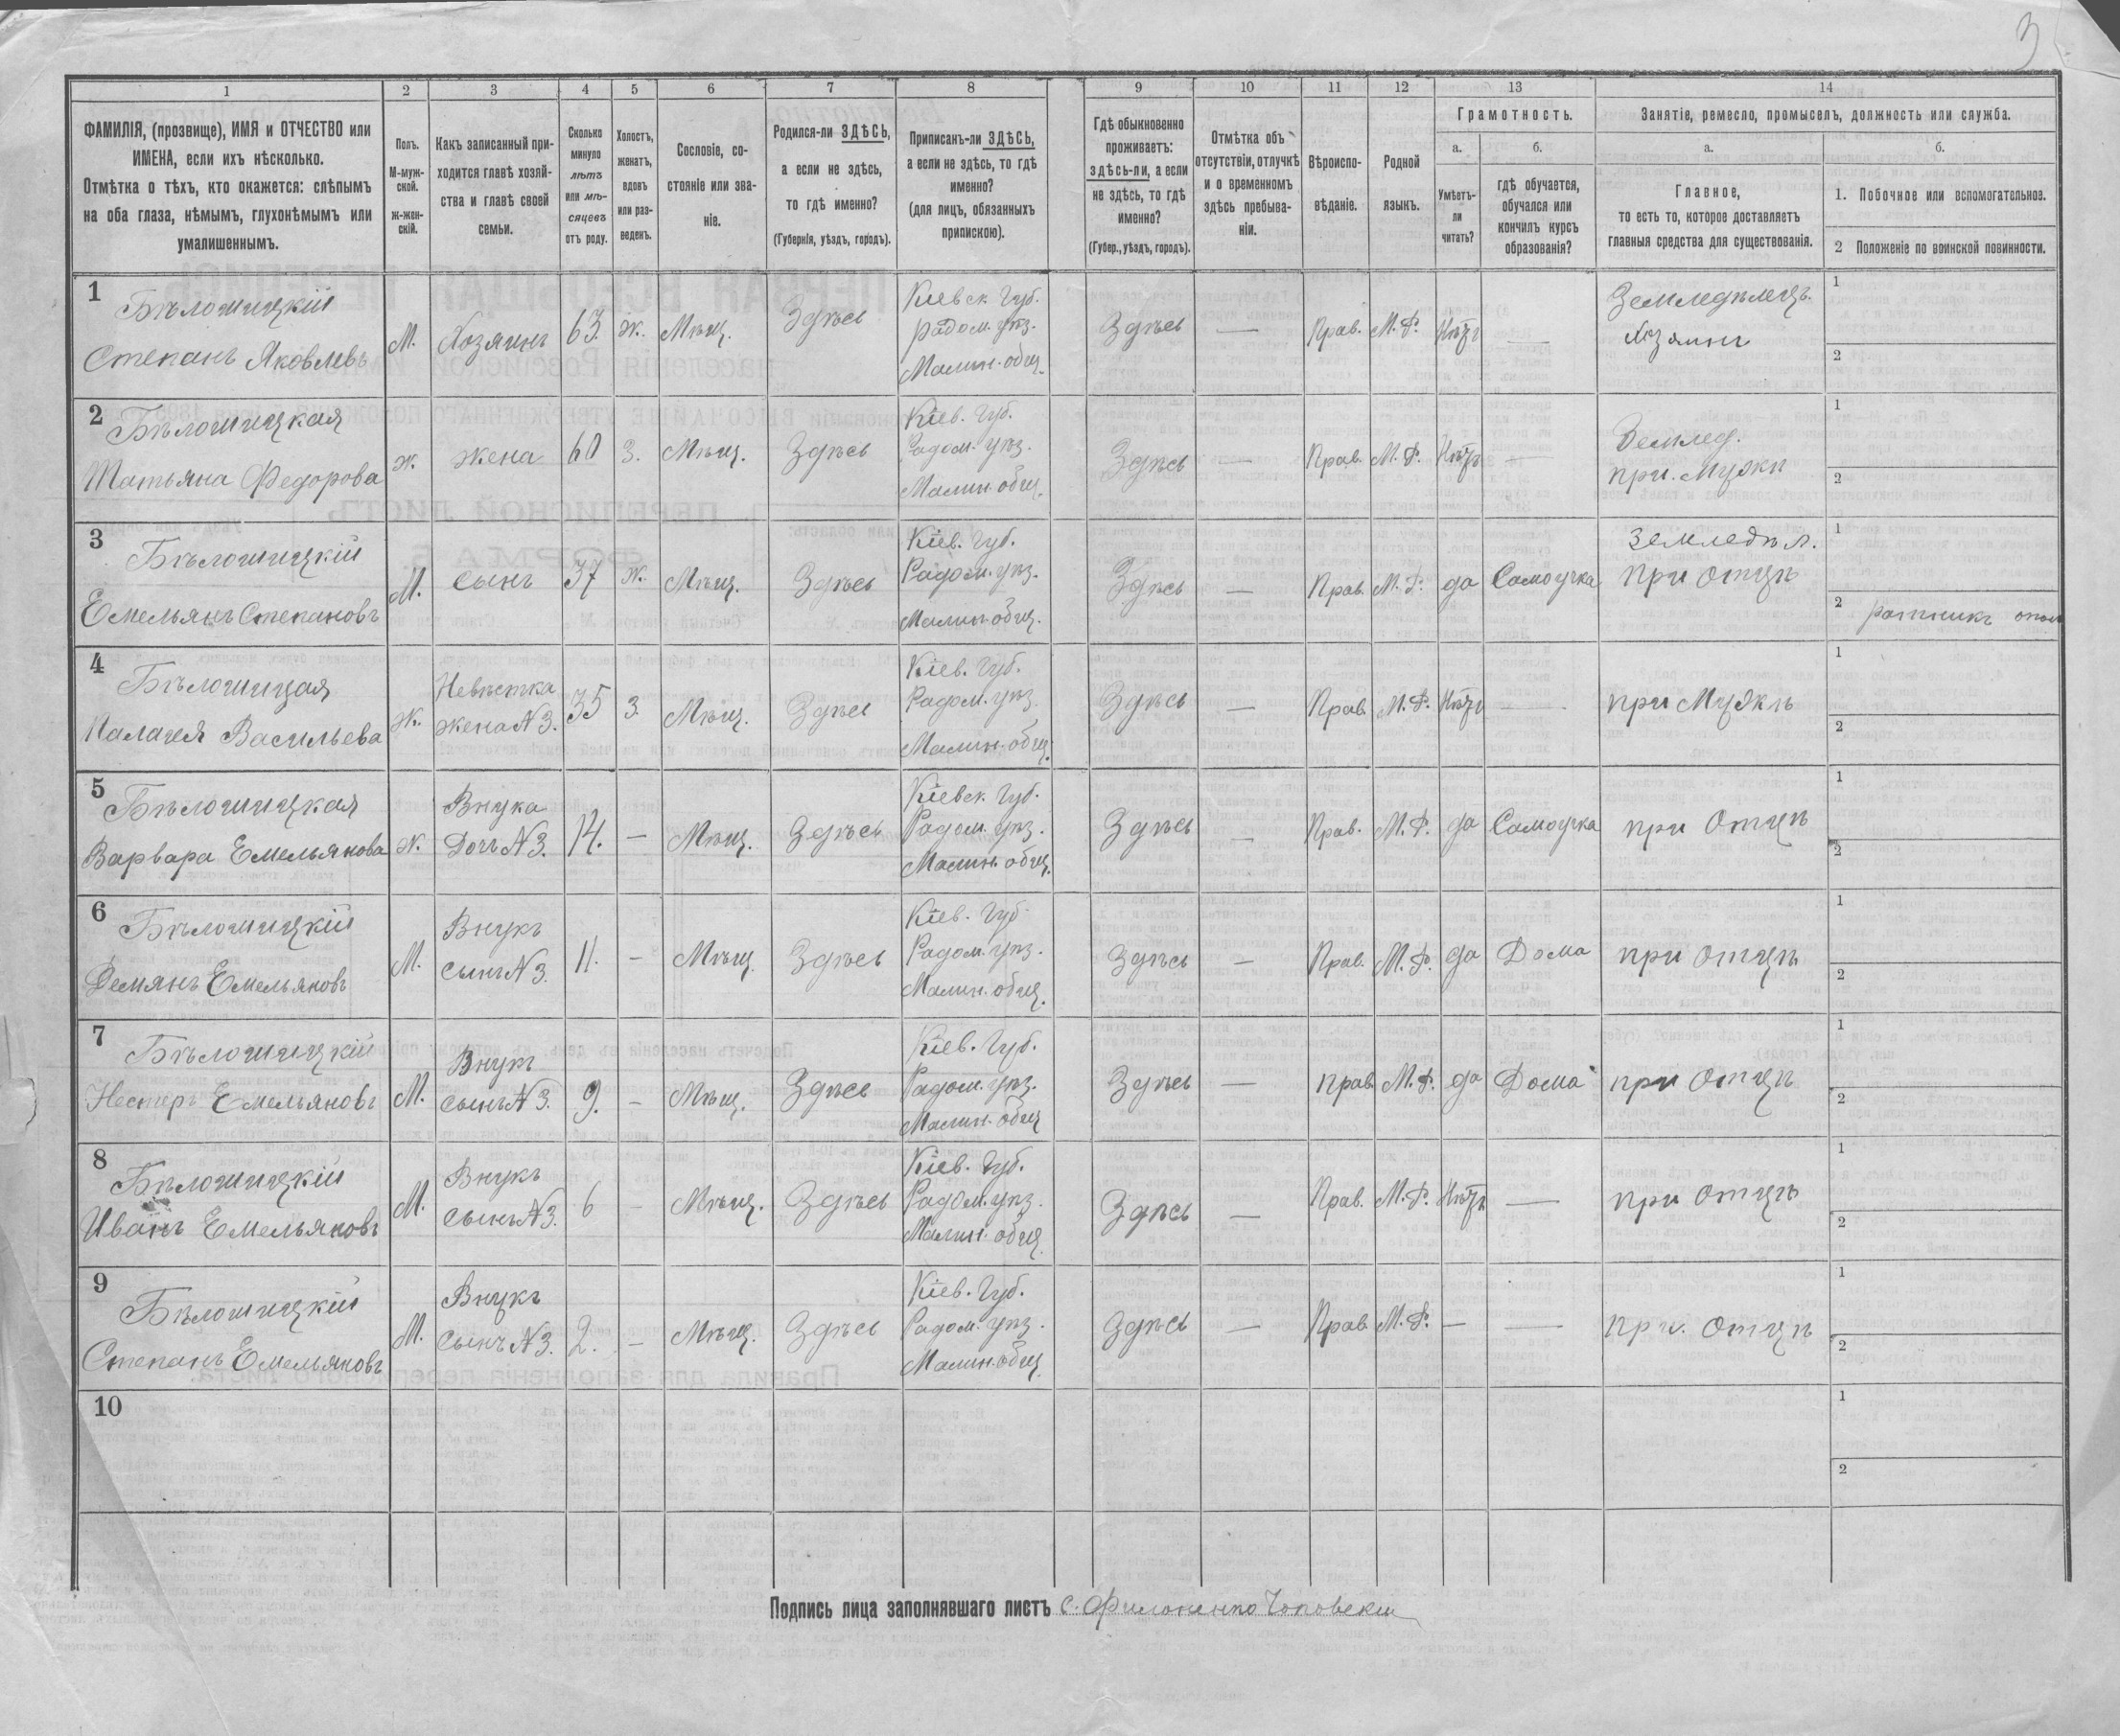 3
1 2 3 4 5 6 7 8 9 10 11 12 13 14
ФАМИЛІЯ, (прозвище), ИМЯ и ОТЧЕСТВО или
ИМЕНА, если ихъ нѣсколько.
Отмѣтка о тѣхъ, кто окажется: слѣпымъ
на оба глаза, нѣмымъ, глухонѣмымъ или
умалишеннымъ.
Полъ.
М-муж-
ской.
ж-жен-
скій.
Какъ записанный при-
ходится главѣ хозяй-
ства и главѣ своей
семьи.
Сколько
минуло
лѣтъ
или мѣ-
сяцевъ
отъ роду.
Холостъ,
женатъ,
вдовъ
или раз-
веденъ.
Сословіе, со-
стояніе или зва-
ніе.
Родился-ли ЗДѢСЬ,
а если не здѣсь,
то гдѣ именно?
(Губернія, уѣздъ, городъ).
Приписанъ-ли ЗДѢСЬ,
а если не здѣсь, то гдѣ
именно?
(для лицъ, обязанныхъ
припискою).
Гдѣ обыкновенно
проживаетъ:
здѣсь-ли, а если
не здѣсь, то гдѣ
именно?
(Губер., уѣздъ, городъ).
Отмѣтка объ
отсутствіи, отлучкѣ
и о временномъ
здѣсь пребыва-
ніи.
Вѣроиспо-
вѣданіе.
Родной
языкъ.
Грамотность.
а.
Умѣетъ-
ли
читать?
б.
гдѣ обучается,
обучался или
кончилъ курсъ
образованія?
Занятіе, ремесло, промыселъ, должность или служба.
а.
Главное,
то есть то, которое доставляетъ
главныя средства для существованія.
б.
1. Побочное или вспомогательное.
2 Положеніе по воинской повинности.
1
Бѣлошицкій
Степанъ Яковлевъ
М.
Хозяинъ
63.
ж.
Мѣщ.
Здѣсь
Кіевск. Губ.
Радом. уѣз.
Малин. общ.
Здѣсь
—
Прав.
М. Р.
Нѣтъ
—
Земледѣлецъ.
Хозяинъ
1
2
2
Бѣлошицкая
Татьяна Федорова
ж.
жена
60
З.
Мѣщ.
Здѣсь
Кіев. Губ.
Радом. уѣз.
Малин. общ.
Здѣсь
—
Прав.
М. Р.
Нѣтъ
—
Землед.
при. Мужѣ
1
2
3
Бѣлошицкій
Емельянъ Степановъ
М.
сынъ
37
ж.
Мѣщ.
Здѣсь
Кіев. Губ.
Радом. уѣз.
Малин. общ.
Здѣсь
—
Прав.
М. Р.
да
Самоучка
Земледѣл.
при отцѣ
1
2 ратникъ опол
4
Бѣлошицая
Палагея Васильева
ж.
Невѣстка
жена N 3.
35
З.
Мѣщ.
Здѣсь
Кіев. Губ.
Радом. уѣз.
Малин. общ.
Здѣсь
—
Прав.
М. Р.
Нѣтъ
—
при Мужѣ
1
2
5
Бѣлошицкая
Варвара Емельянова
ж.
Внука
Дочь N 3.
14.
—
Мѣщ.
Здѣсь
Кіевск. Губ.
Радом. уѣз.
Малин. общ.
Здѣсь
—
Прав.
М. Р.
да
Самоучка
при Отцѣ
1
2
6
Бѣлошицкій
Демянъ Емельяновъ
М.
Внукъ
сынъ N 3.
11.
—
Мѣщ.
Здѣсь
Кіев. Губ.
Радом. уѣз.
Малин. общ.
Здѣсь
—
Прав.
М. Р.
да
Дома
при Отцѣ
1
2
7
Бѣлошицкій
Нестеръ Емельяновъ
М.
Внукъ
сынъ N 3.
9.
—
Мѣщ.
Здѣсь
Кіев. Губ.
Радом. уѣз.
Малин. общ
Здѣсь
—
прав
М. Р.
да
Дома
при Отцѣ
1
2
8
Бѣлошицкій
Иванъ Емельяновъ
М.
Внукъ
сынъ N 3.
6
—
Мѣщ.
Здѣсь
Кіев. Губ.
Радом. уѣз.
Малин. общ.
Здѣсь
—
Прав.
М. Р.
Нѣтъ
—
при Отцѣ
1
2
9
Бѣлошицкій
Степанъ Емельяновъ
М.
Внукъ
Сынъ N 3.
2.
—
Мѣщ.
Здѣсь
Кіев. Губ.
Радом. уѣз.
Малин. общ.
Здѣсь
—
Прав
М. Р.
—
—
При. Отцѣ
1
2
10
1
2
Подпись лица заполнявшаго листъ С. Филоненко